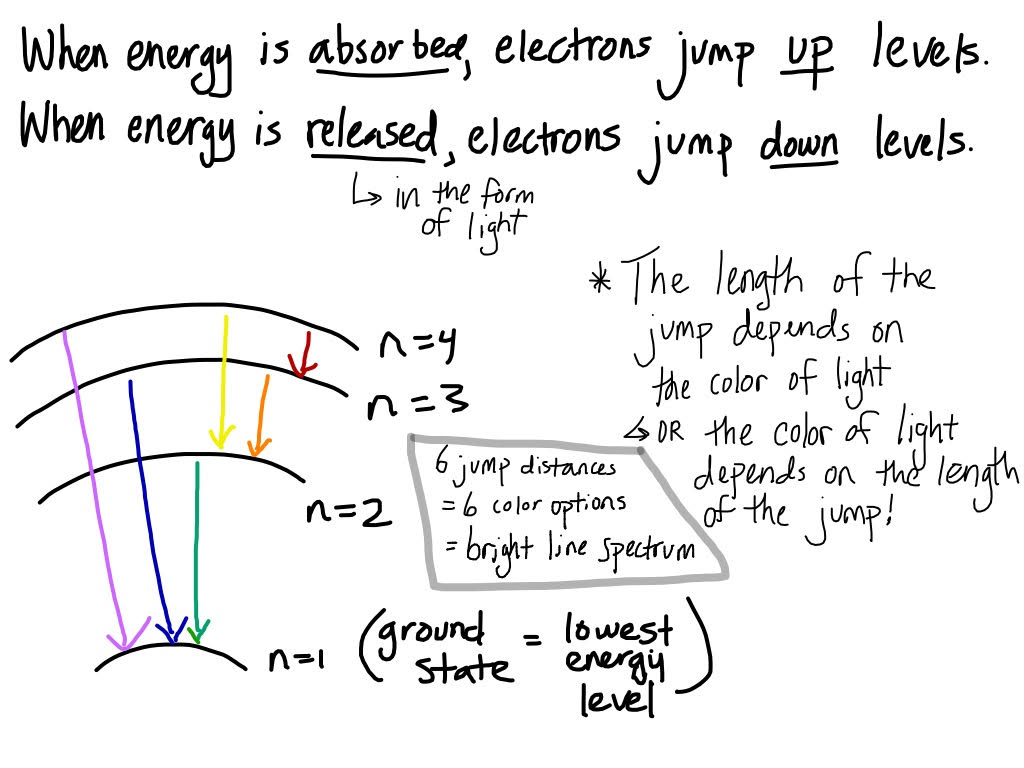 When energy is absorbed, electrons jump up levels.
When energy is released, electrons jump down levels.
↳ in the form
of light
* The length of the
jump depends on
the color of light
↳ OR the color of light
depends on the length
of the jump!
n=4
n=3
n=2
6 jump distances
= 6 color options
= bright line spectrum
n=1 (ground state = lowest energy level)